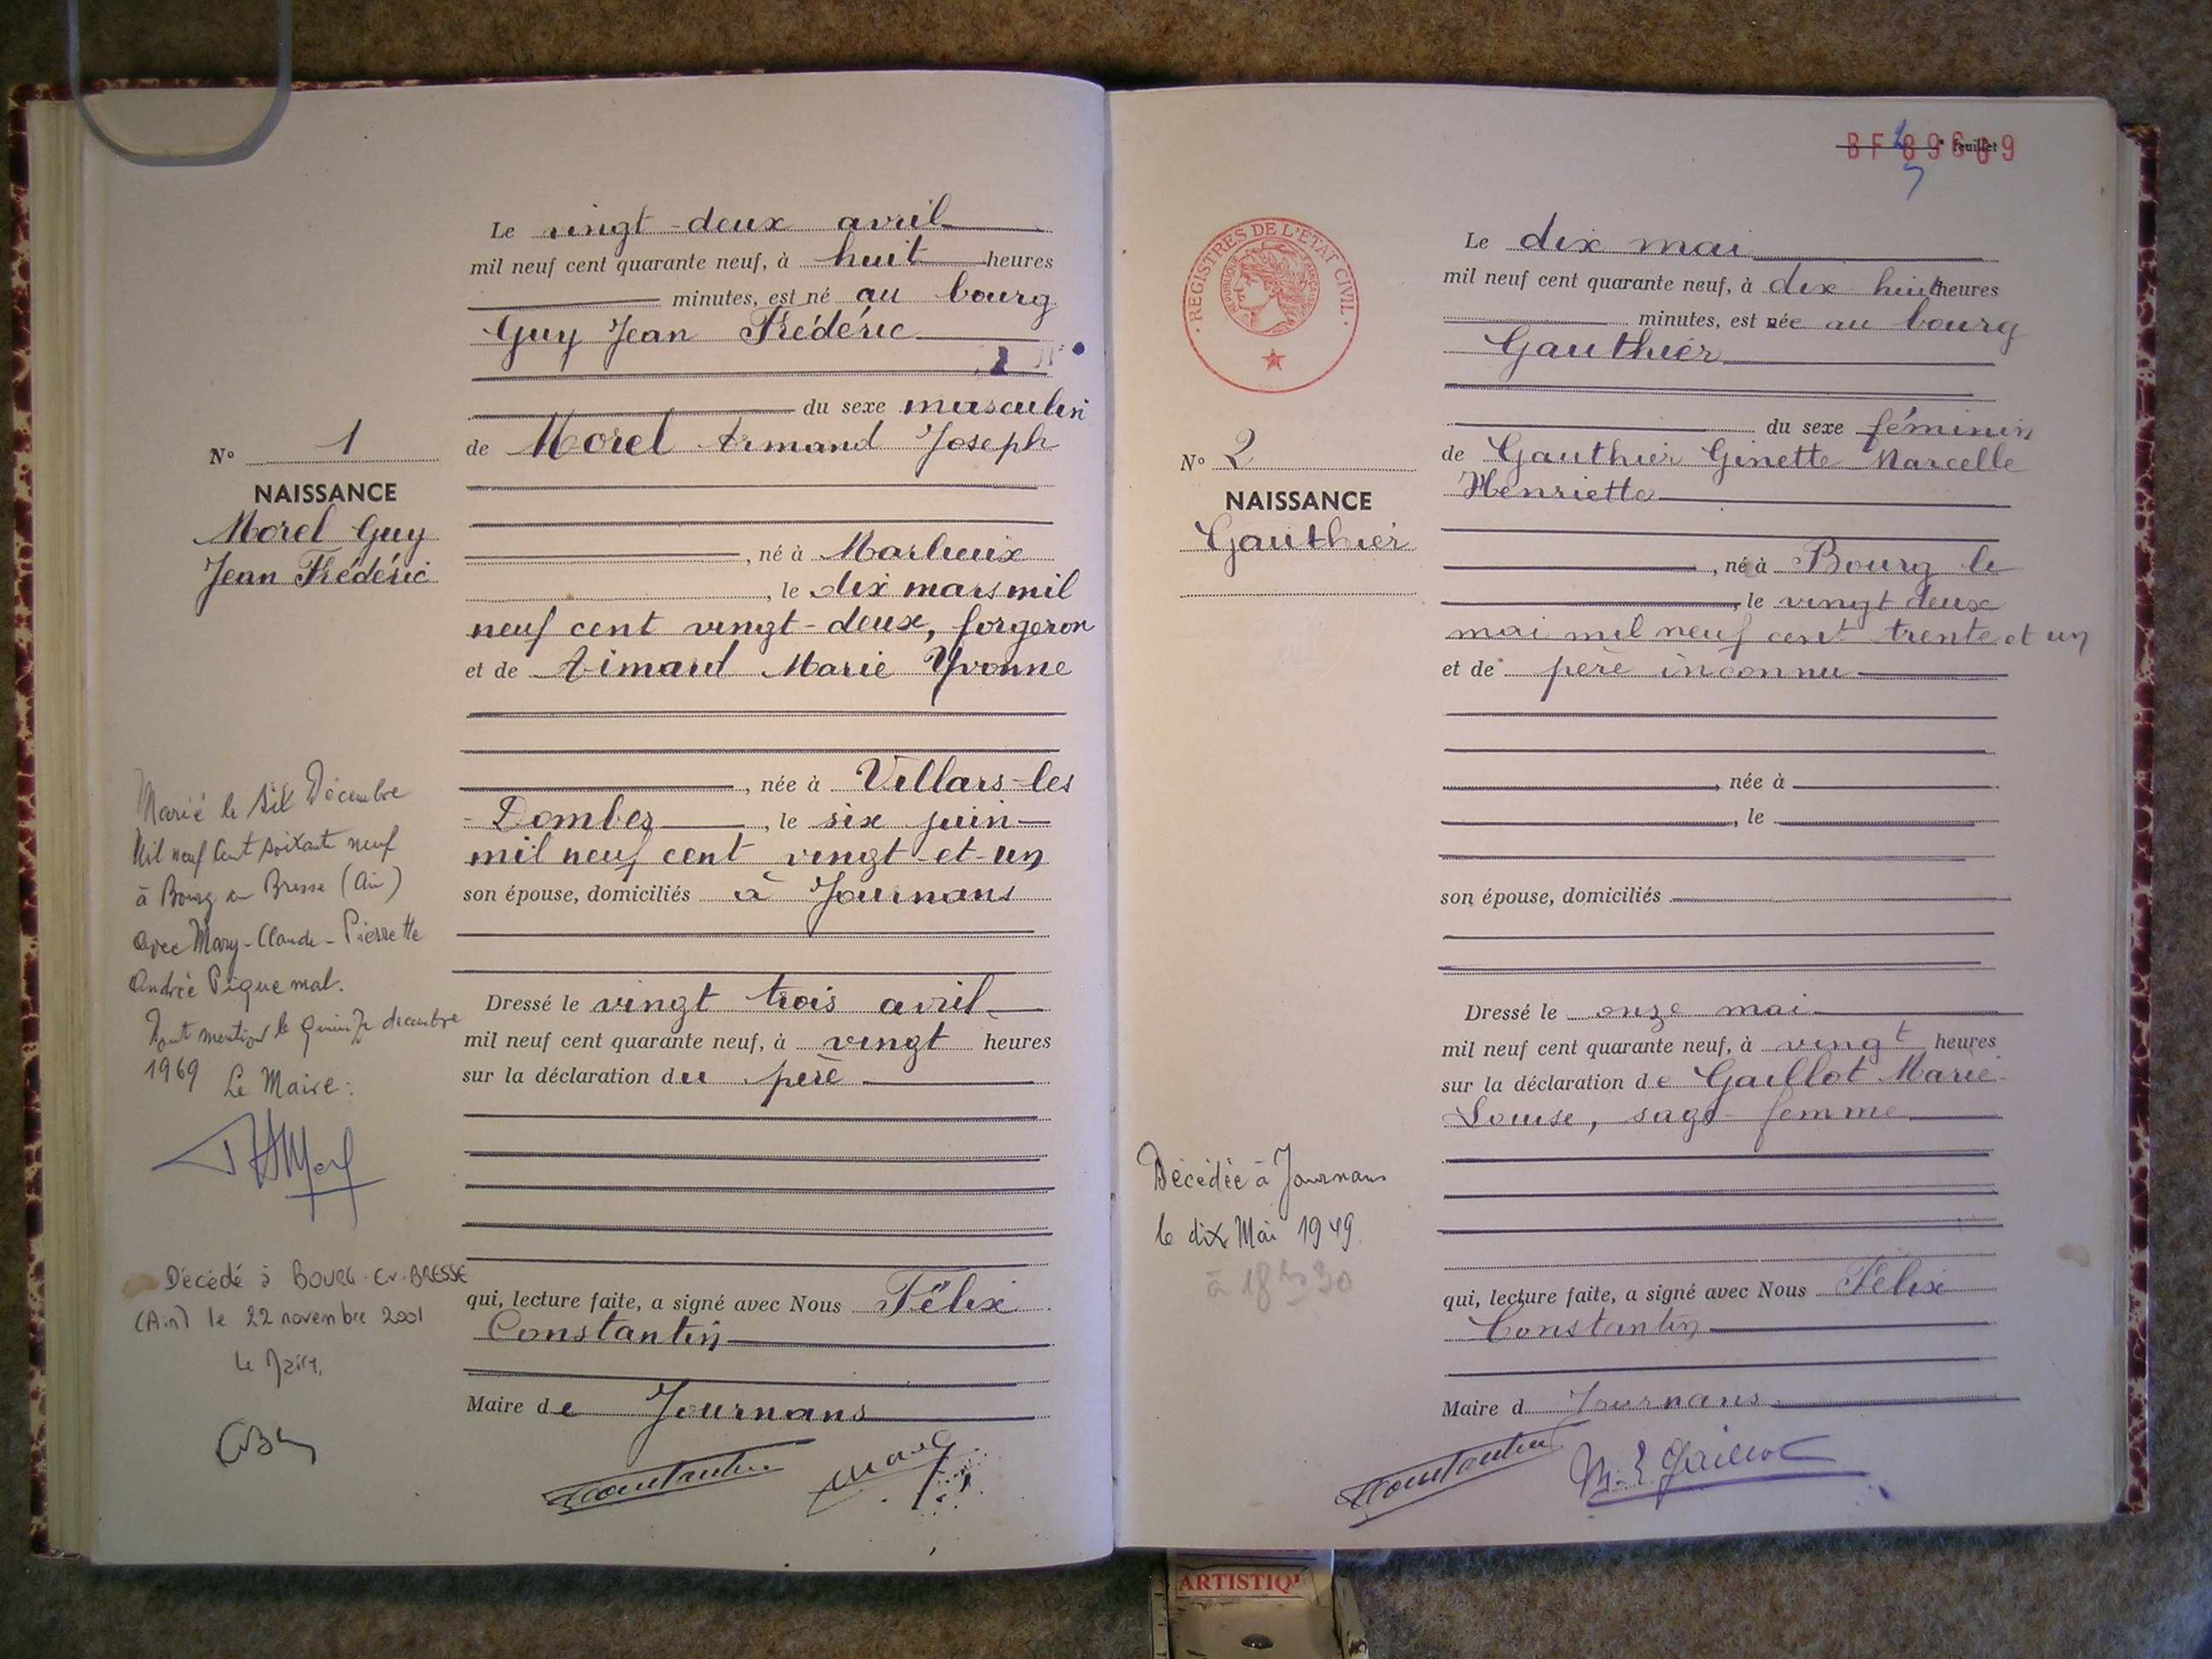 Le vingt-deux avril
mil neuf cent quarante neuf, à huit heures
minutes, est né au bourg
Guy Jean Frédéric
du sexe masculin
N° 1
de Morel Armand Joseph
NAISSANCE
Morel Guy
Jean Frédéric
, né à Marlieux
, le dix mars mil
neuf cent vingt-deux, forgeron
et de Aimard Marie Yvonne
, née à Villars-les
-Dombes, le six juin
mil neuf cent vingt-et-un
son épouse, domiciliés à Journans
Dressé le vingt trois avril
mil neuf cent quarante neuf, à vingt heures
sur la déclaration du père
qui, lecture faite, a signé avec Nous Félix
Constantin
Maire de Journans
Constantin Morel
Marié le Six Décembre
Mil neuf Cent soixante neuf
à Bourg en Bresse (Ain)
avec Mary-Claude-Pierrette
Andrée Piquemal.
Dont mention le quinze décembre
1969 Le Maire:
Décédé à BOURG-EN-BRESSE
(Ain) le 22 novembre 2001
Le Maire,
BF 89689
feuillet
REGISTRES DE L'ÉTAT CIVIL
RÉPUBLIQUE FRANÇAISE
Le dix mai
mil neuf cent quarante neuf, à dix huit heures
minutes, est née au bourg
Gauthier
du sexe féminin
N° 2
de Gauthier Ginette Marcelle
Henriette
NAISSANCE
Gauthier
, né à Bourg le
, le vingt deux
mai mil neuf cent trente et un
et de père inconnu
, née à
, le
son épouse, domiciliés
Dressé le onze mai
mil neuf cent quarante neuf, à vingt heures
sur la déclaration de Gaillot Marie
Louise, sage-femme
qui, lecture faite, a signé avec Nous Félix
Constantin
Maire d Journans
Constantin M.L Gaillot
Décédée à Journans
le dix Mai 1949.
à 18h30
ARTISTIQ